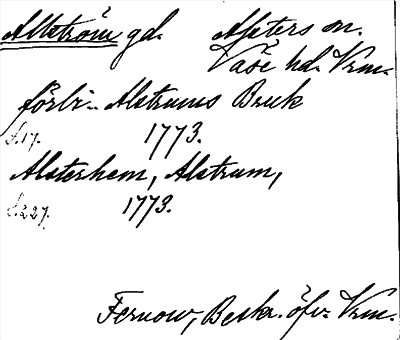 Allström gd. Alsters sn.
Väse hd. Vrm.
förbi Alstrums Bruk
s. 17. 1773.
Alsterhem, Alstrum,
s. 227. 1773.
Fernow, Beskr. öfv. Vrm.